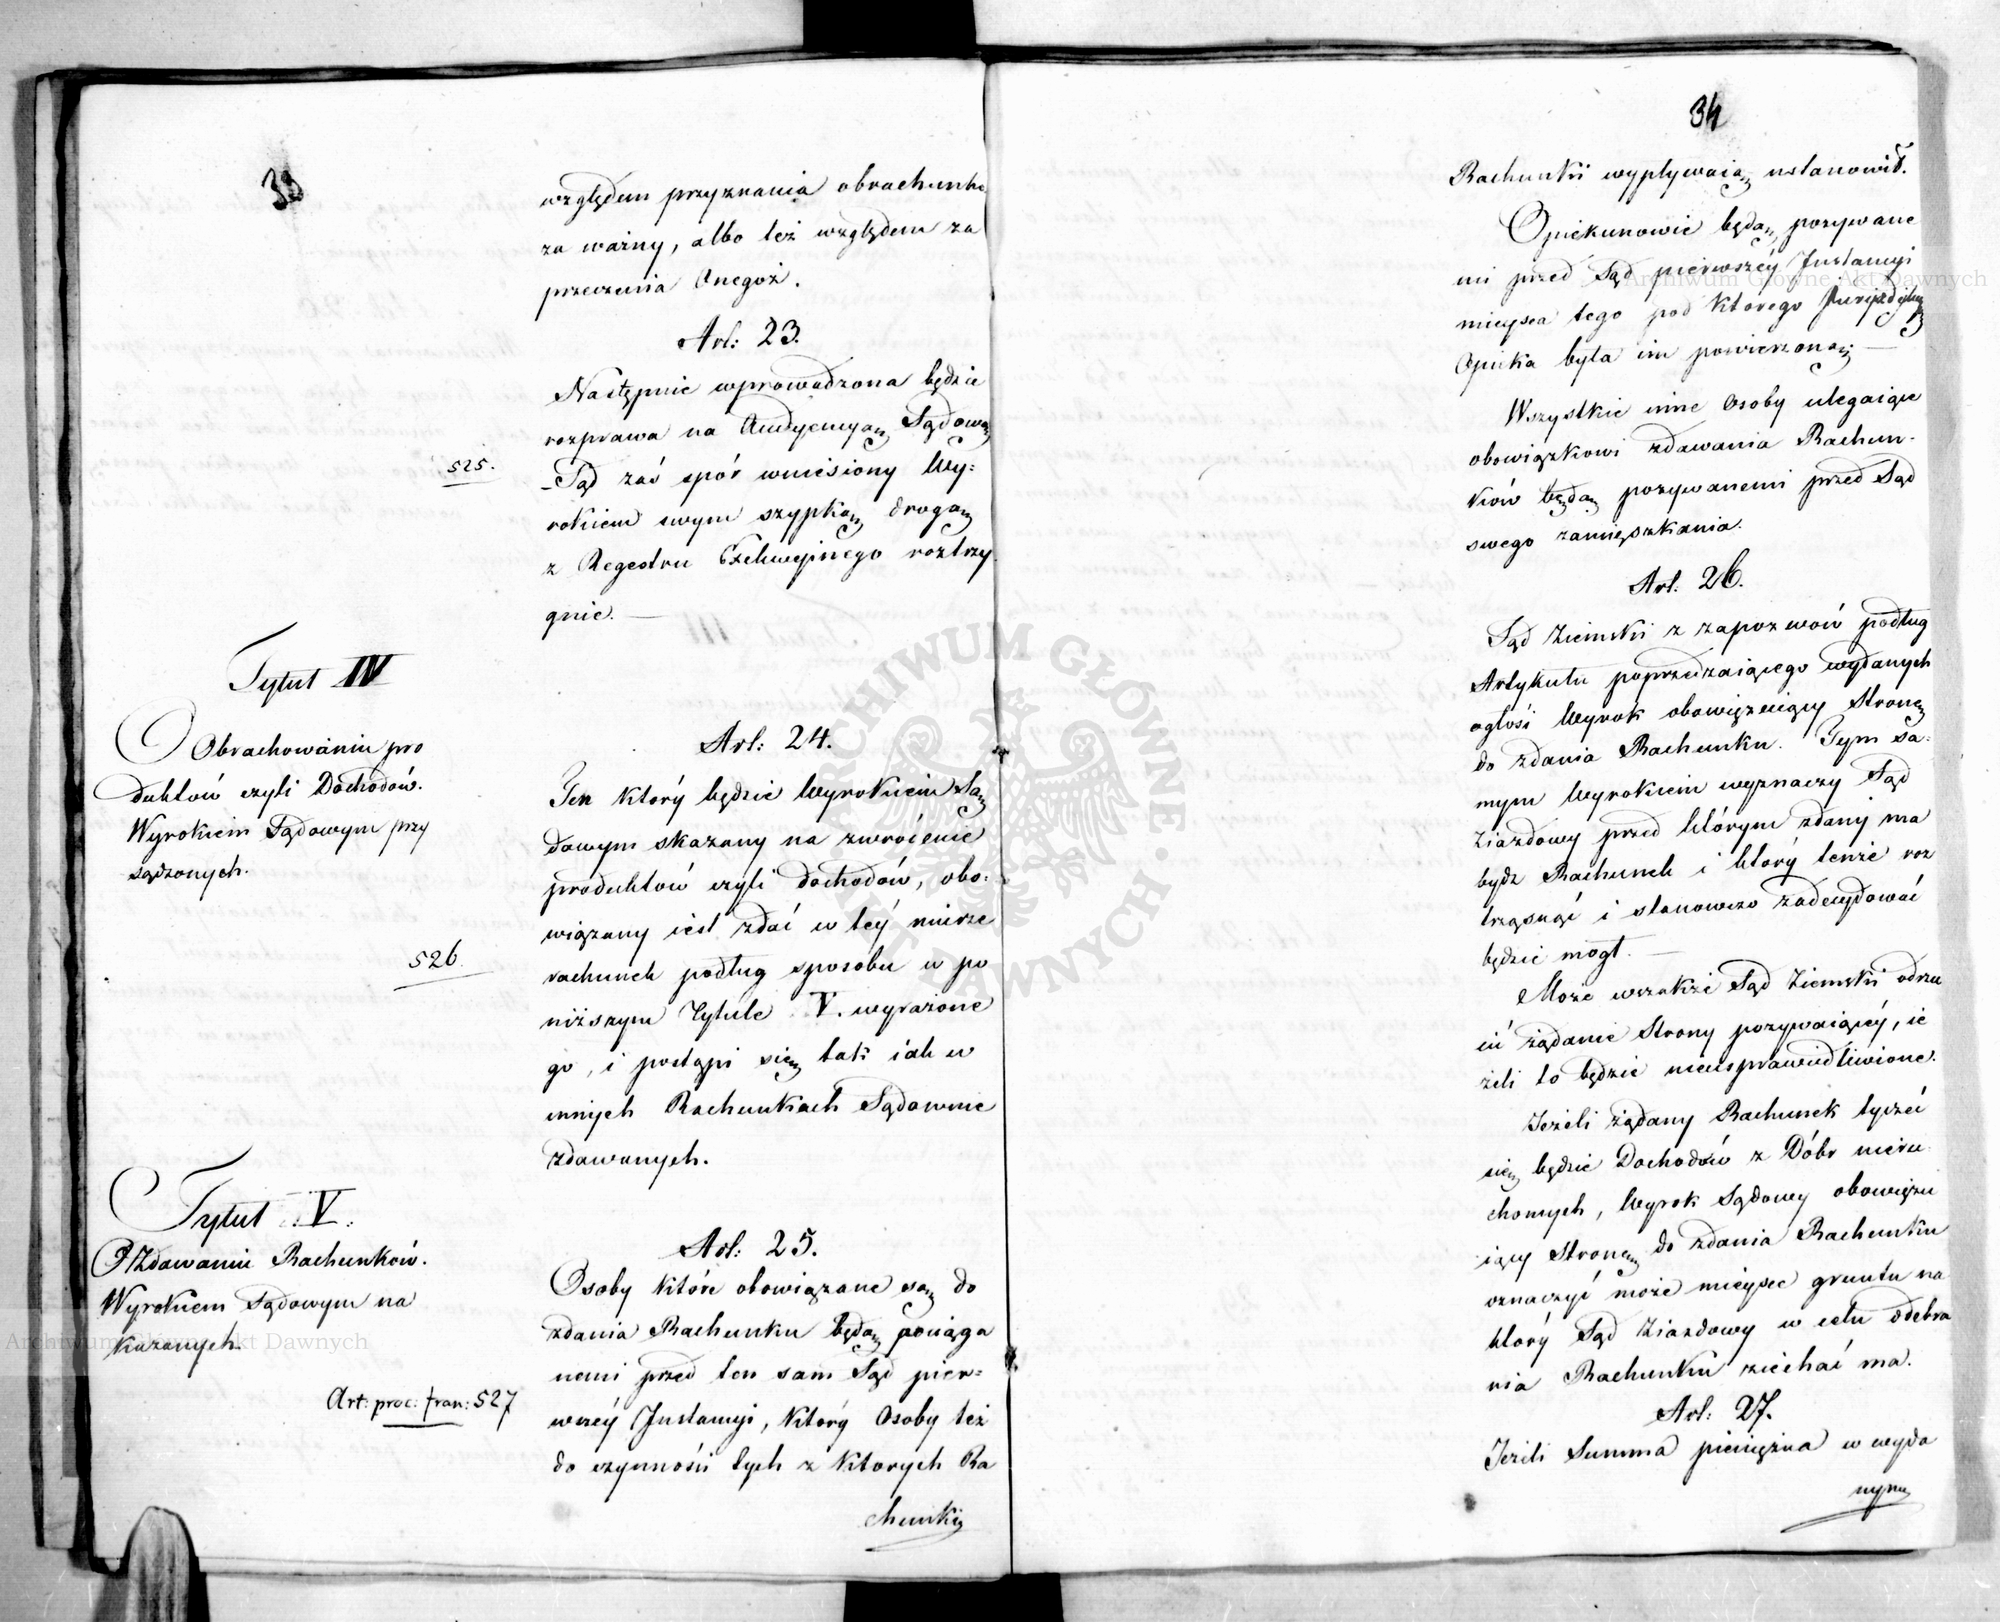 33
względem przyznania obrachunku
za ważny, albo też względem za
przeczenia Onegoż.
Art: 23.
Następnie wprowadzona będzie
rozprawa na Audyencyą Sądową
525.
Sąd zaś spór wniesiony Wy=
rokiem swym szypką drogą
z Regestru Exekucyjnego roztrzy
gnie. —
Tytuł IV
O Obrachowaniu pro
duktów czyli Dochodów.
Wyrokiem Sądowym przy
sądzonych.
Art: 24.
Ten który będzie Wyrokiem Są
dowym skazany na zwrócenie
produktów czyli dochodów, obo=
wiązany iest zdać w téy mierze
526.
rachunek podług sposobu w po
niższym Tytule V. wyrażone
go, i postąpi się tak iak w
innych Rachunkach Sądownie
zdawanych.
Tytuł V.
O Zdawaniu Rachunków.
Wyrokiem Sądowym na
kazanych.
Art: proc: fran: 527
Art: 25.
Osoby które obowiązane są do
zdania Rachunku będą pociąga
nemi przed ten sam Sąd pier=
wszéy Instancyi, który Osoby też
do czynności tych z których Ra
chunki
34
Rachunki wypływaią ustanowił.
Opiekunowie będą pozywane
mi przed Sąd pierwszéy Instancyi
mieysca tego pod którego Juryzdykcyą
Opieka była im powierzoną; —
Wszystkie inne Osoby ulegaiące
obowiązkowi zdawania Rachun=
ków będą pozywanemi przed Sąd
swego zamięszkania.
Art. 26.
Sąd Ziemski z zapozwów podług
Artykułu poprzedzaiącego wydanych
ogłosi Wyrok obowięzuiący Stronę
do zdania Rachunku. Tym sa=
mym Wyrokiem wyznaczy Sąd
Ziazdowy przed którym zdany ma
bydz Rachunek i który tenże roz
trząsnąć i stanowczo zadecydować
będzie mógł. —
Może wszakże Sąd Ziemski odrzu
cić żądanie Strony pozywaiącéy, ie
żeli to będzie nieusprawiedliwione.
Jeżeli żądany Rachunek tyczeć
się będzie Dochodów z Dóbr nieru
chomych, Wyrok Sądowy obowięzu
iący Stronę do zdania Rachunku
oznaczyć może mieysce gruntu na
który Sąd Ziazdowy w celu odebra
nia Rachunku ziechać ma.
Art: 27.
Jeżeli Summa pieniężna w wyda
nym
ARCHIWUM GŁÓWNE AKT DAWNYCH
Archiwum Główne Akt Dawnych
Archiwum Główne Akt Dawnych